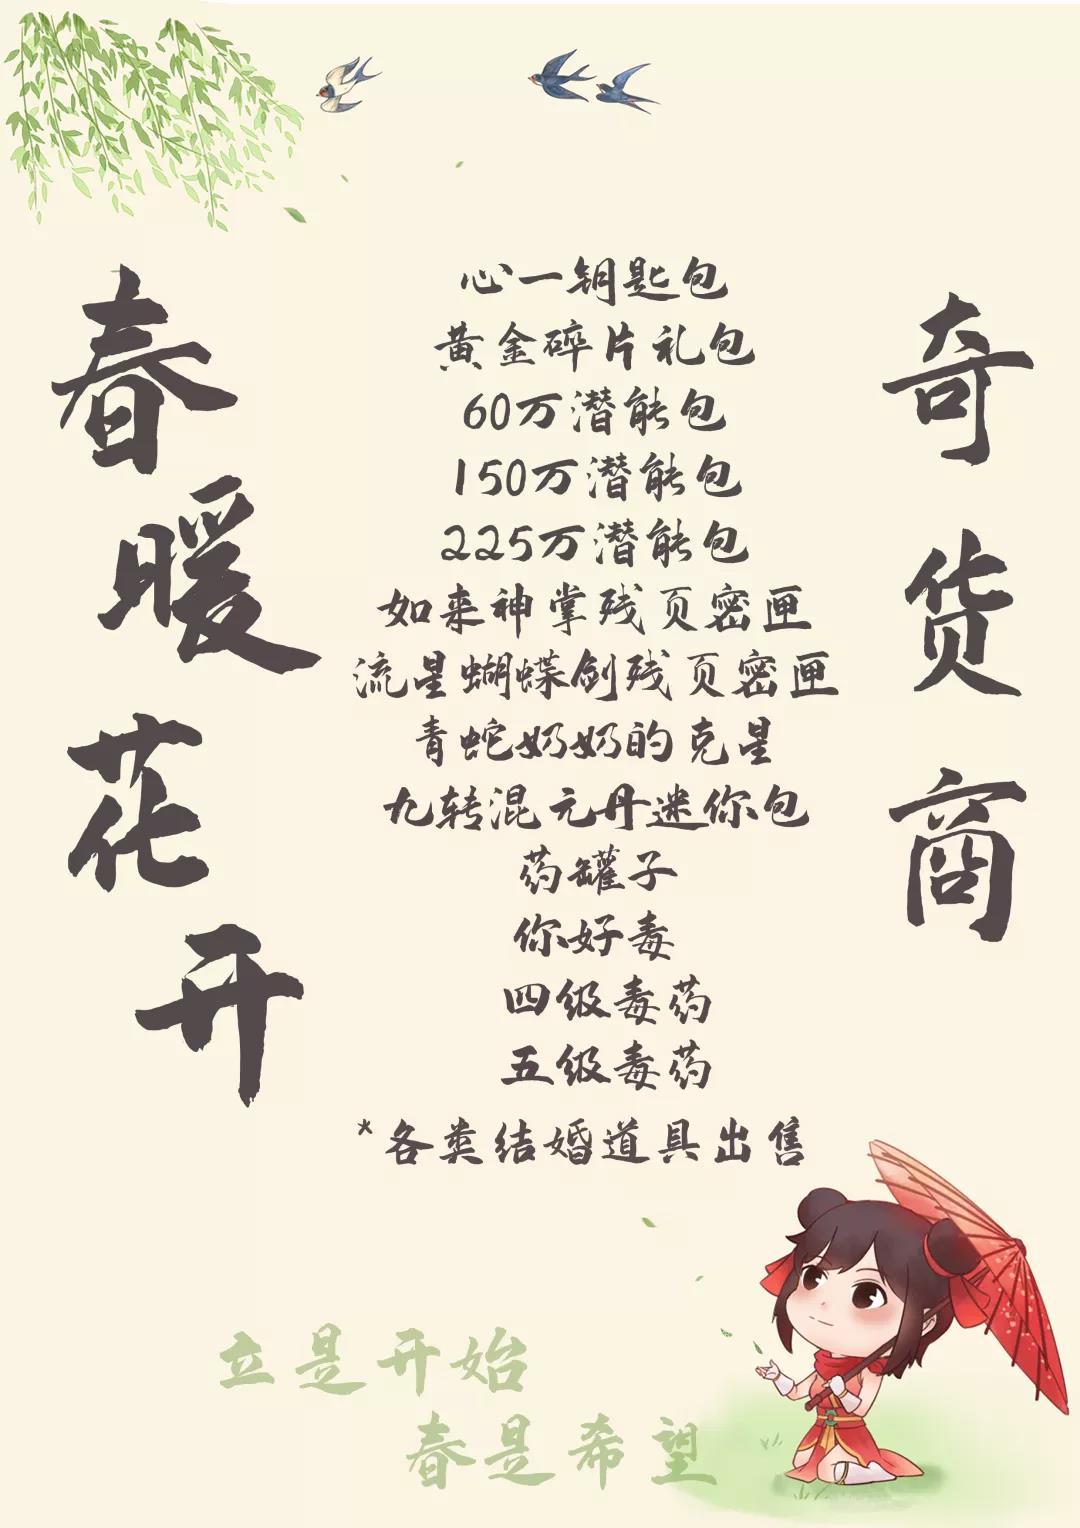 春暖花开
奇货商
心一钥匙包
黄金碎片礼包
60万潜能包
150万潜能包
225万潜能包
如来神掌残页密匣
流星蝴蝶剑残页密匣
青蛇奶奶的克星
九转混元丹迷你包
药罐子
你好毒
四级毒药
五级毒药
*各类结婚道具出售
立是开始
春是希望